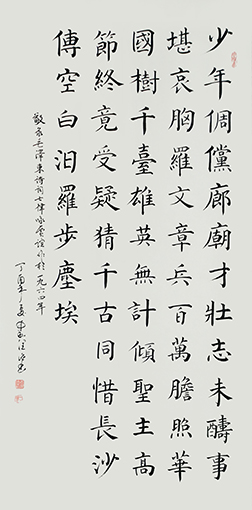 少年倜儻廊廟才壯志未醻事
堪哀胸羅文章兵百萬膽照華
國樹千臺雄英無計傾聖主高
節終竟受疑猜千古同惜長沙
傳空白汨羅步塵埃
敬录毛澤東诗词七律咏贾誼作於一九六四年
丁酉年夏